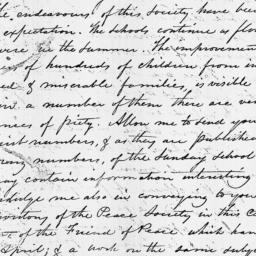 endeavours of this Society have been
expectation. The schools continue as
in the Summer. The improvement
of hundreds of children from
& miserable families, is visible
a number of them there are
of piety. Allow me to send you
numbers, & as they are published
numbers, of the Sunday school
contain information interesting
me also in conveying to you
of the Peace Society in this
of the Friend of Peace which
April; & a work on the same